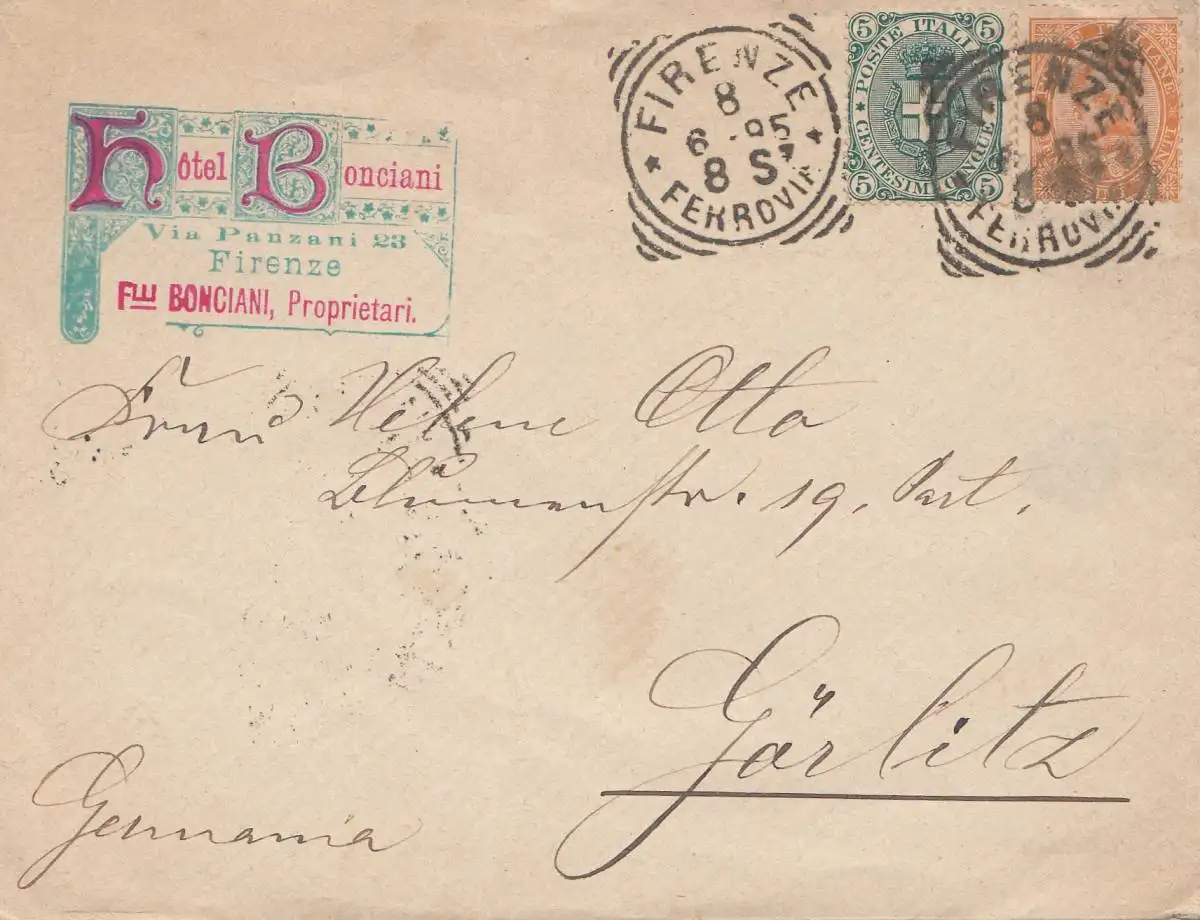 Hôtel Bonciani
Via Panzani 23
Firenze
Flli BONCIANI, Proprietari.
FIRENZE
8
6 95
8 S
* FERROVIA *
5 POSTE ITALIANE 5
5 * CENTESIMI CINQUE * 5
FIRENZE
8
FERROVIA
Frau Helene Otto
Blumenstr. 19, Part.
Görlitz
Germania